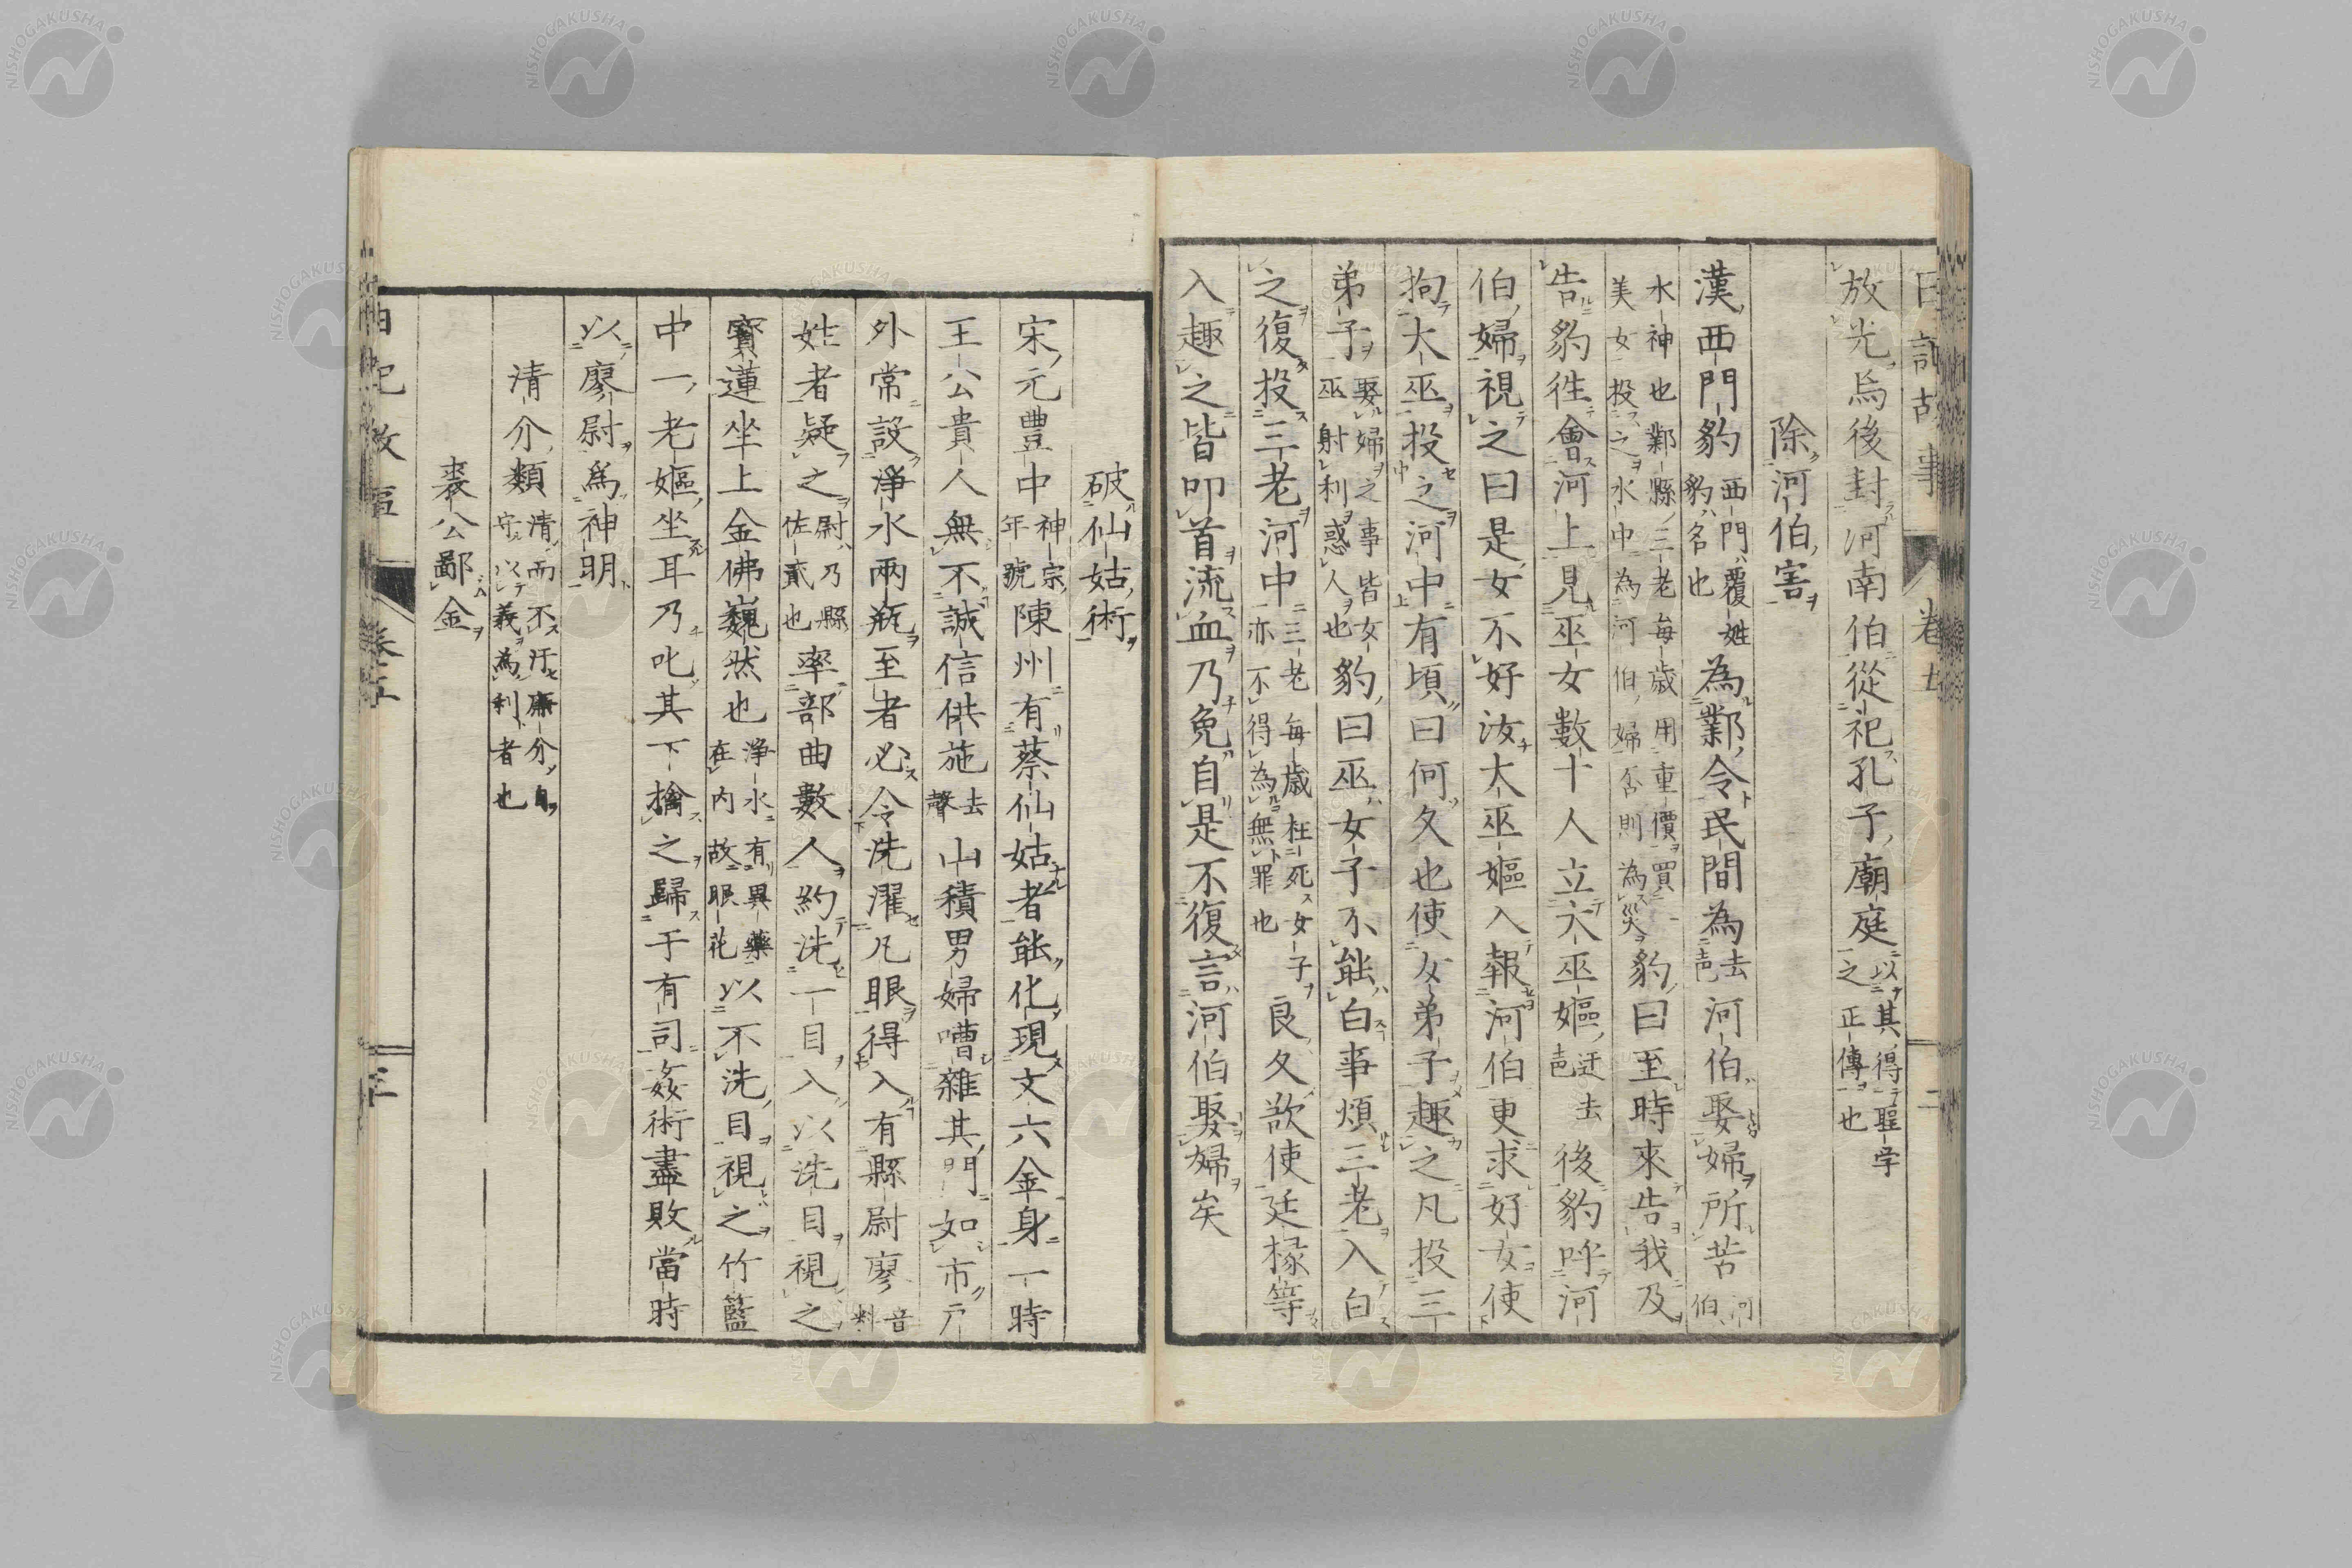 日記故事 卷七 二
放光焉後封河南伯從祀孔子廟庭以其得聖学之正傳也
除河伯害
漢西門豹西門覆姓豹名也為鄴令民間為去声河伯娶婦所苦河伯
水神也鄴縣三老每歳用重價買美女投之水中為河伯婦否則為災豹曰至時來告我及
告豹徃會河上見巫女數十人立大巫嫗迂去声後豹呼河
伯婦視之曰是女不好汝大巫嫗入報河伯更求好女使
拘大巫投之河中有頃曰何久也使女弟子趣之凡投三
弟子娶婦之事皆女巫射利惑人也豹曰巫女子不能白事煩三老入白
之復投三老河中三老每歳枉死女子亦不得為無罪也良久欲使廷掾等
入趣之皆叩首流血乃免自是不復言河伯娶婦矣
破仙姑術
宋元豊中神宗年號陳州有蔡仙姑者能化現丈六金身一時
王公貴人無不誠信供施去聲山積男婦嘈雜其門如市戸
外常設淨水兩瓶至者必令洗濯凡眼得入有縣尉廖音料
姓者疑之尉乃縣佐貳也率部曲數人約洗一目入以洗目視之
寳蓮坐上金佛巍然也淨水有異藥在内故眼花以不洗目視之竹籃
中一老嫗坐耳乃叱其下擒之歸于有司姦術盡敗當時
以廖尉爲神明
清介類清而不汙廉介自守以義為利者也
裴公鄙金